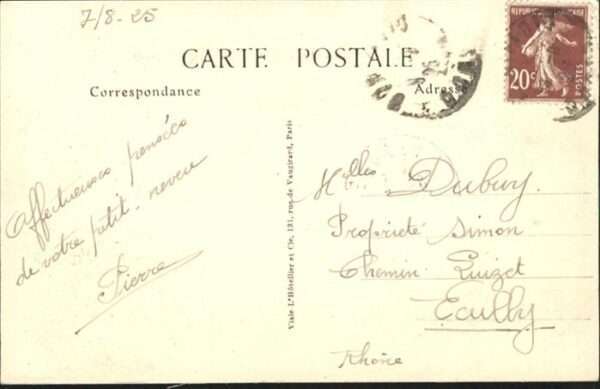 7/8-25
CARTE POSTALE
Correspondance
Adresse
RÉPUBLIQUE FRANÇAISE
20c
POSTES
Affectueuses pensées
de votre petit-neveu
Pierre
Viale L'Hôtellier et Cie, 131, rue de Vaugirard, Paris
Mlles Dubuy
Propriété Simon
Chemin Guizet
Ecully
Rhône